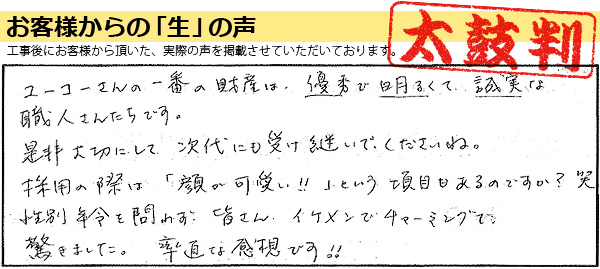 お客様からの「生」の声
工事後にお客様から頂いた、実際の声を掲載させていただいております。
太鼓判
ユーコーさんの一番の財産は、優秀で明るくて、誠実な
職人さんたちです。
是非大切にして次代にも受け継いで、くださいね。
採用の際は「顔が可愛い!!」という項目もあるのですか?笑
性別年令を問わず、皆さん、イケメンでチャーミングで、
驚きました。 率直な感想です!!